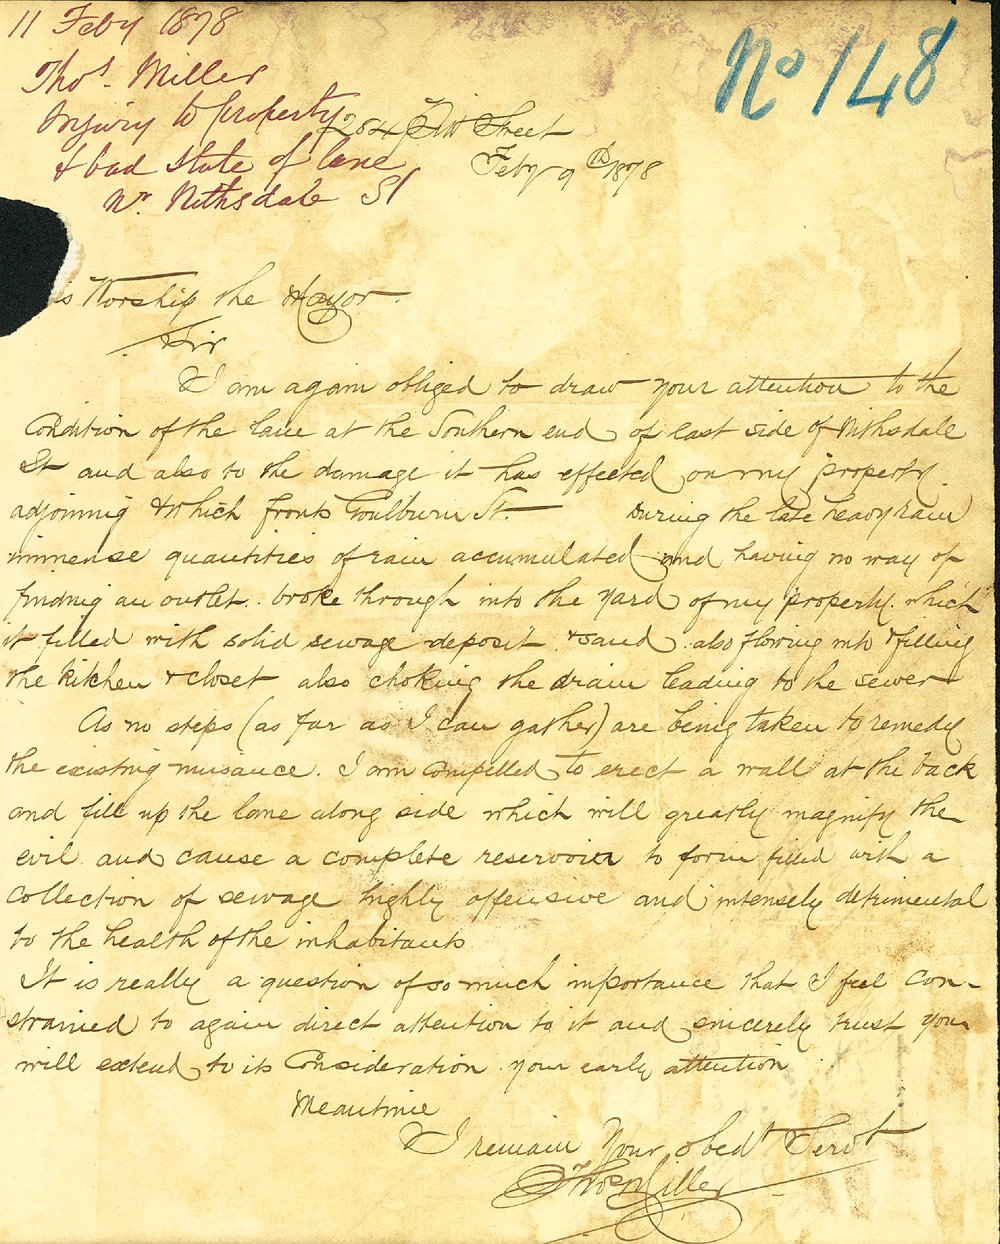 11 Feby 1878
Thos. Miller
Injury to property
& bad state of lane
Nr. Nithsdale St
No 148
284 Pitt Street
Feby 9th 1878
s Worship the Mayor.
Sir
I am again obliged to draw your attention to the
Condition of the lane at the Southern end of East side of Nithsdale
St and also to the damage it has effected on my property.
adjoining & which fronts Goulburn St. — During the late heavy rain
immense quantities of rain accumulated and having no way of
finding an outlet. broke through into the yard of my property. which
it filled with solid sewage deposit. & sand. also flowing into & filling
the kitchen & closet also choking the drain leading to the sewer
As no steps (as far as I can gather) are being taken to remedy
the existing nuisance. I am compelled to erect a wall at the back
and fill up the lane along side which will greatly magnify the
evil. and cause a complete reservoir to form filled with a
collection of sewage highly offensive and intensely detrimental
to the health of the inhabitants
It is really a question of so much importance that I feel con-
strained to again direct attention to it and sincerely trust you
will extend to its Consideration. your early attention
Meantime
I remain Your obedt Servt
Thos Miller